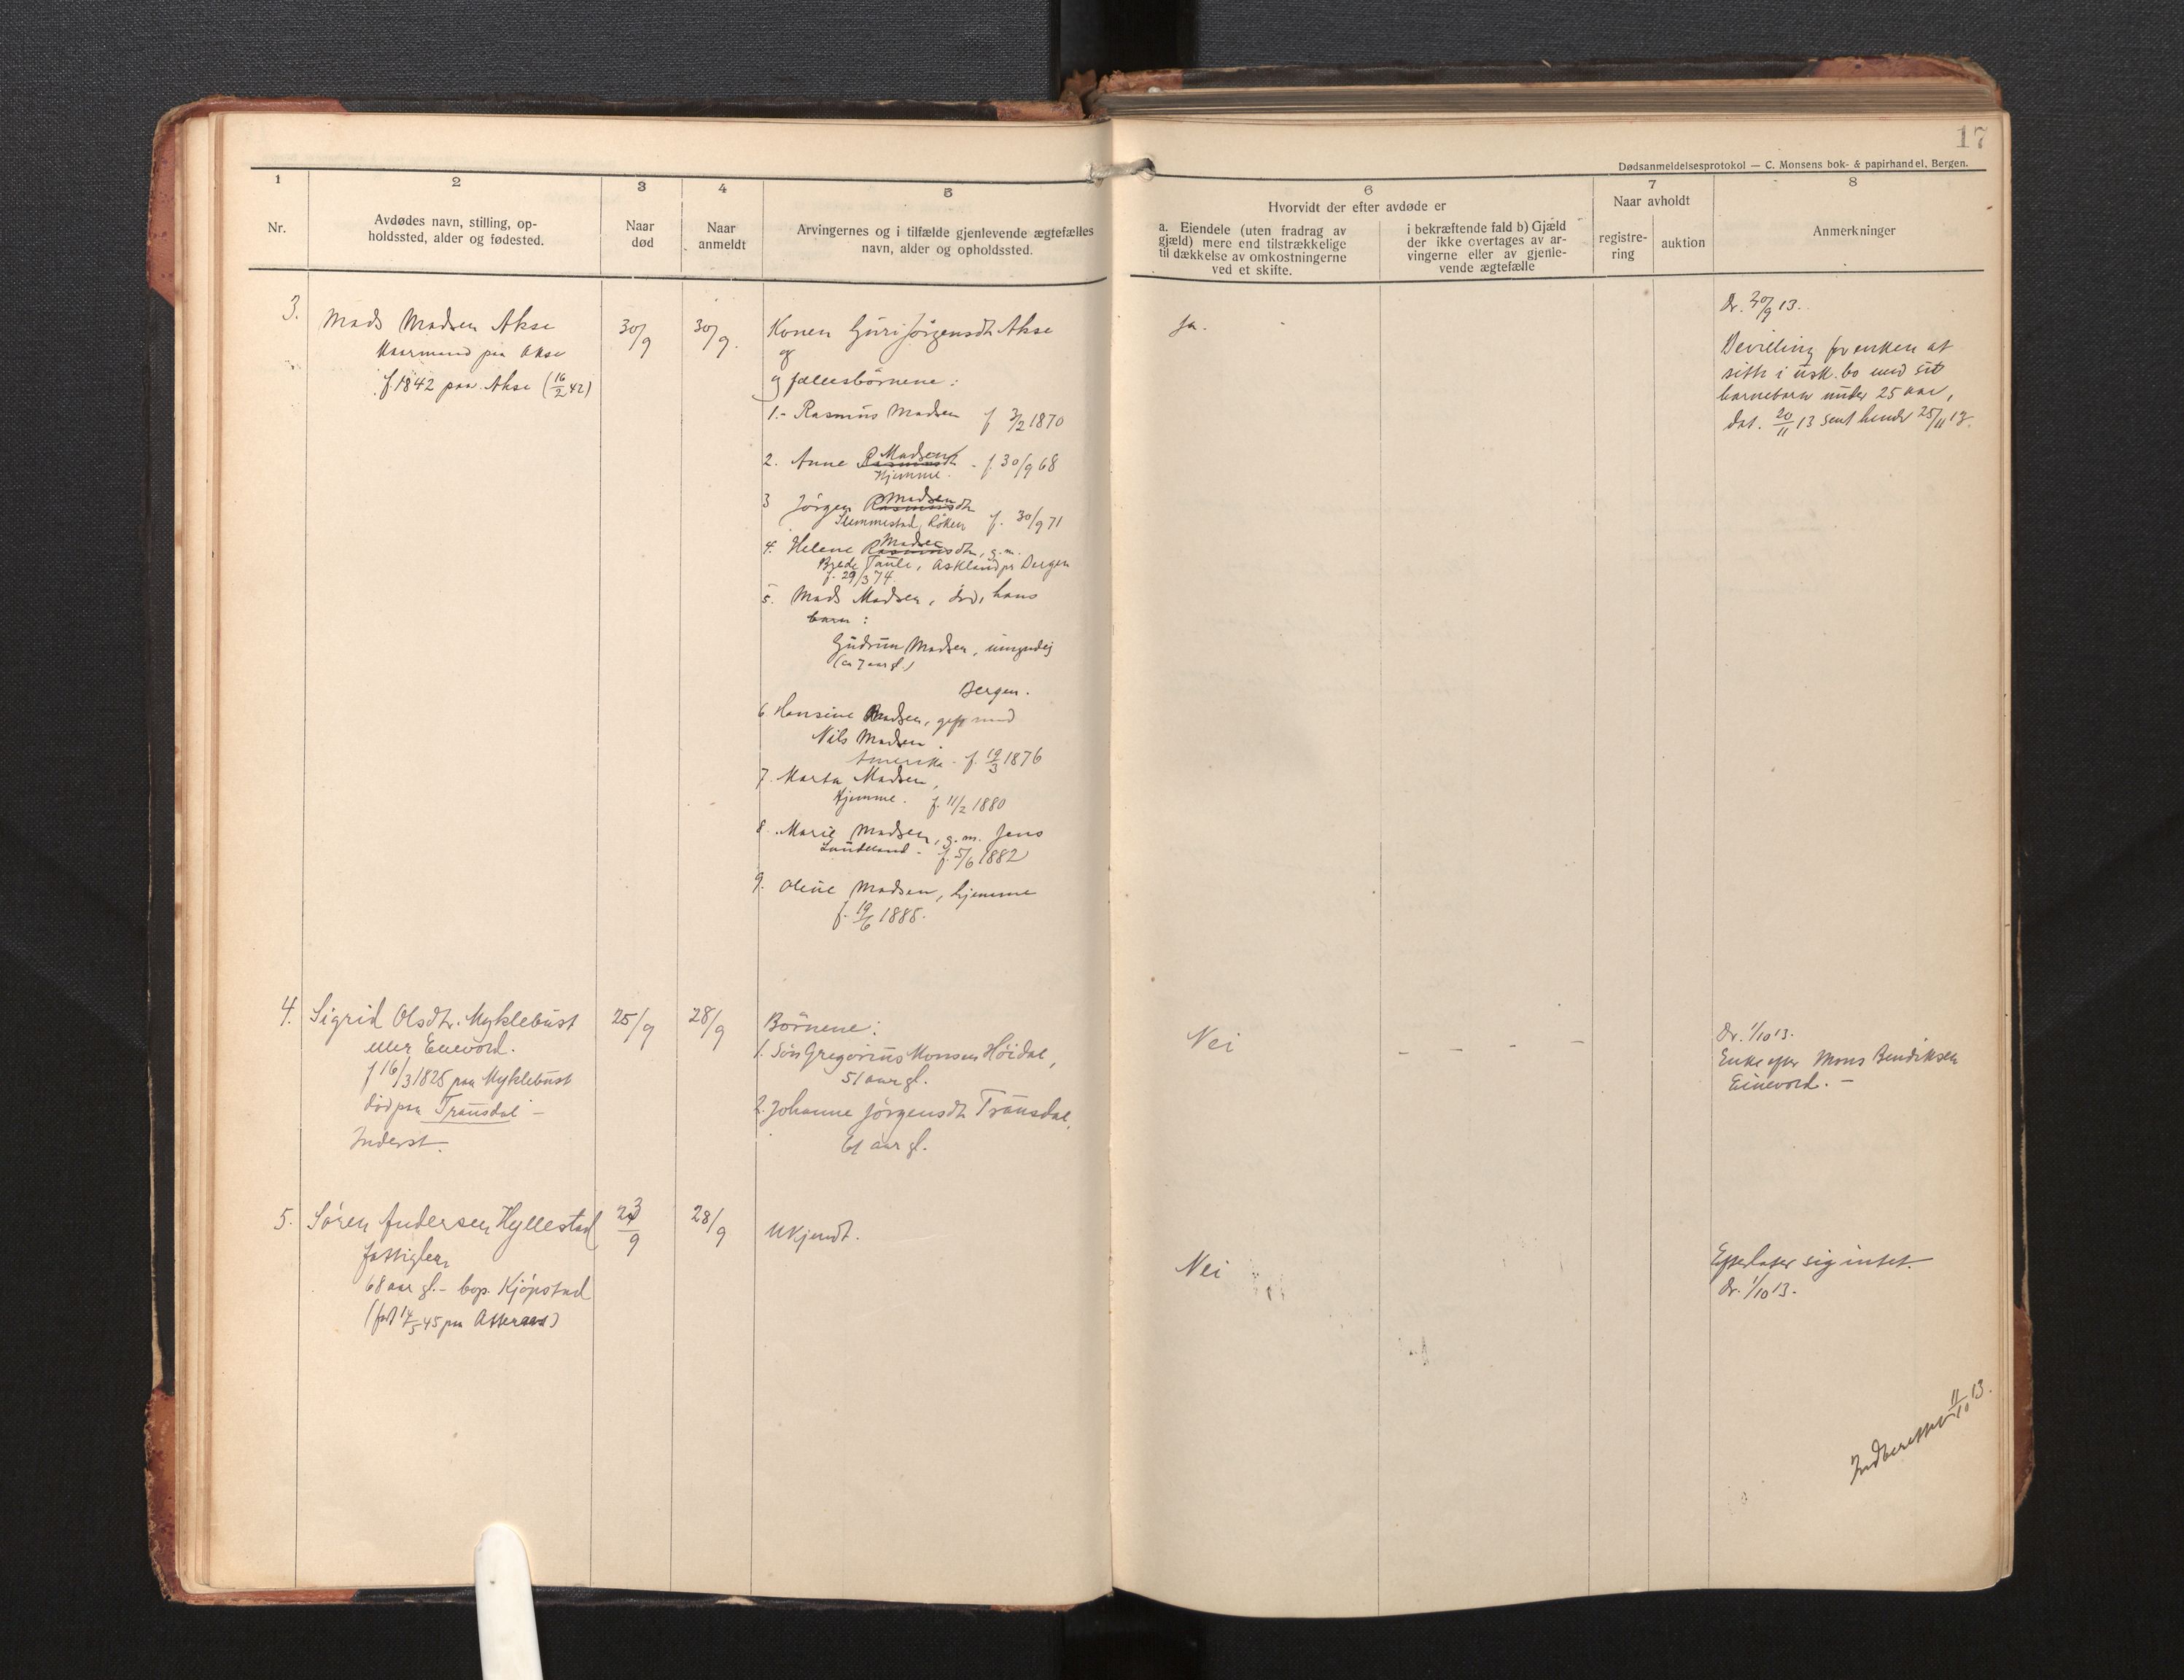 17
Dødsanmeldelsesprotokol — C. Monsens bok- & papirhandel, Bergen.
1
Nr.
2
Avdødes navn, stilling, op-
holdssted, alder og fødested.
3
Naar
død
4
Naar
anmeldt
5
Arvingernes og i tilfælde gjenlevende ægtefælles
navn, alder og opholdssted.
6
Hvorvidt der efter avdøde er
a. Eiendele (uten fradrag av
gjæld) mere end tilstrækkelige
til dækkelse av omkostningerne
ved et skifte.
i bekræftende fald b) Gjæld
der ikke overtages av ar-
vingerne eller av gjenle-
vende ægtefælle
7
Naar avholdt
registre-
ring
auktion
8
Anmerkninger
3.
Mads Madsen Akse
Kaarmand paa Akse
f. 1842 paa Akse (16/2 42)
30/9
30/9.
Konen Guri Jörgensdt Akse
og
og fællesbörnene:
1.- Rasmus Madsen f 3/2 1870
2. Anne Rasmusdt Madsen - f. 30/9 68
Hjemme.
3 Jörgen Rasmusdtr Madsen
Slemmestad, Röken f. 30/9 71
4. Helene Rasmusdtr Madsen, g.m.
Brede Taule, Askland pr Bergen
f. 29/3 74.
5. Mads Madsen, död, hans
barn:
Gudrun Madsen, umyndig
(ca 7 aar gl.)
Bergen.
6. Hansine Madsen, gift med
Nils Madsen.
Amerika - f. 19/3 1876
7. Marta Madsen,
Hjemme. f. 11/2 1880
8. Marie Madsen, g.m. Jens
f. 5/6 1882
9. Oline Madsen, hjemme
f. 19/6 1888.
Ja.
Dr. 30/9 13.
Bevilling for enken at
sitte i usk. bo med sit
barnebarn under 25 aar,
dat. 20/11 13 sent hende 25/11 13.
4.
Sigrid Olsdtr. Myklebust
eller Eenevold.
f 16/3 1825 paa Myklebust
död paa Trausdal -
Inderst.
25/9
28/9
Börnene:
1. Sön Gregorius Monsen Höidal,
51 aar gl.
2. Johanne Jörgensdt Trausdal,
61 aar gl.
Nei
- - - -
Dr. 1/10 13.
Enke efter Mons Bendiksen
Einevold. -
5.
Sören Andersen Hyllestad
fattiglem
68 aar gl. - bop. Kjöpstad
(född 14/5 45 paa Atteraas)
23/9
28/9
Ukjendt.
Nei
Efterlater sig intet.
Dr. 1/10 13.
Indberettet 11/10 13.